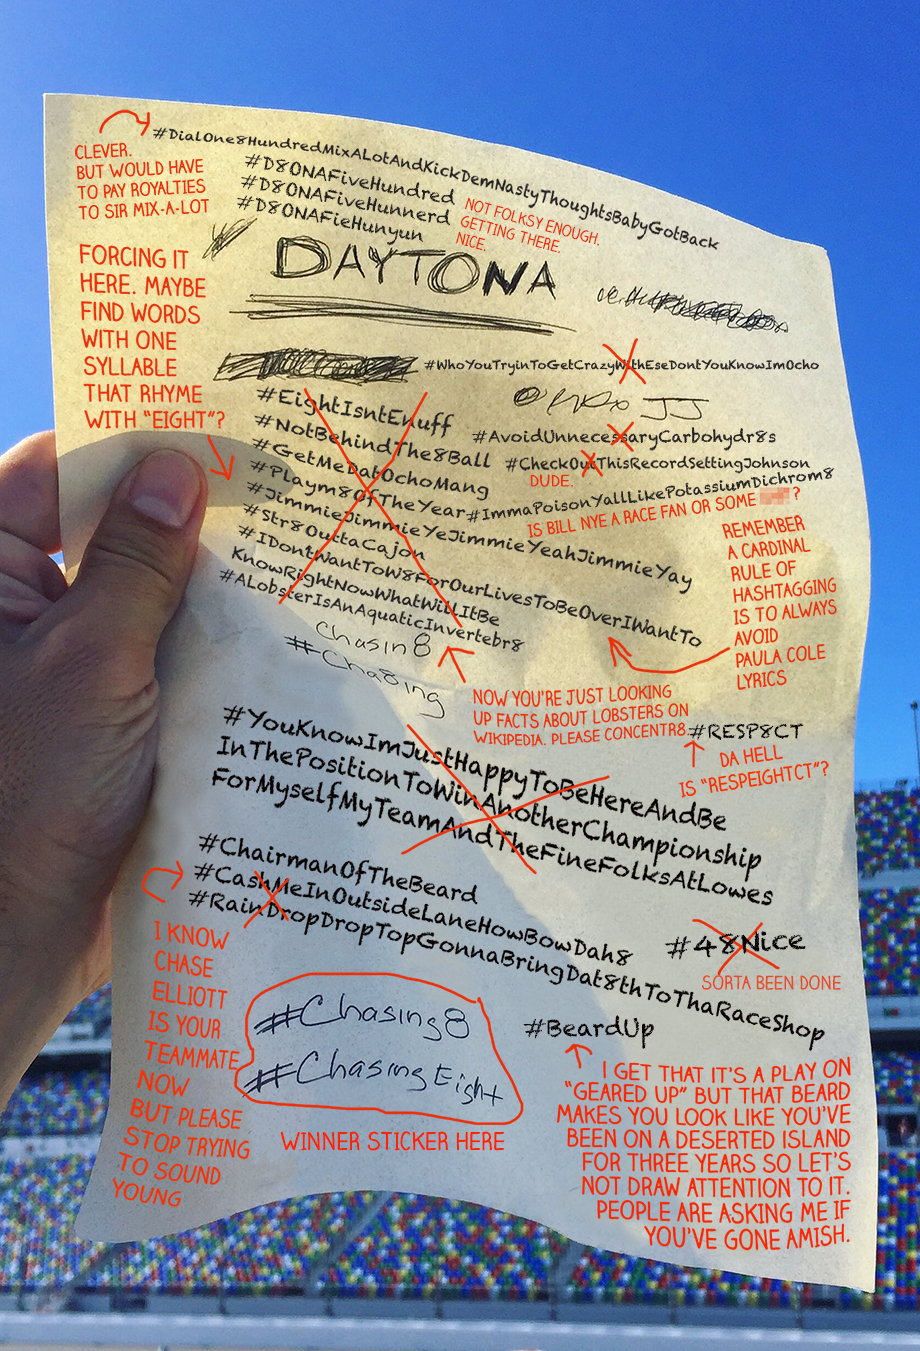 #DialOne8HundredMixALotAndKickDemNastyThoughtsBabyGotBack
CLEVER.
BUT WOULD HAVE
TO PAY ROYALTIES
TO SIR MIX-A-LOT
#D8ONAFiveHundred
#D8ONAFiveHunnerd
#D8ONAFieHunyun
NOT FOLKSY ENOUGH.
GETTING THERE.
NICE.
DAYTONA
FORCING IT
HERE. MAYBE
FIND WORDS
WITH ONE
SYLLABLE
THAT RHYME
WITH "EIGHT"?
#WhoYouTryinToGetCrazyWithEseDontYouKnowImOcho
JJ
#EightIsntEnuff
#NotBehindThe8Ball
#GetMeDatOchoMang
#Playm8OfTheYear
#JimmieJimmieYeJimmieYeahJimmieYay
#Str8OuttaCajon
#IDontWantToW8ForOurLivesToBeOverIWantTo
KnowRightNowWhatWillItBe
#ALobsterIsAnAquaticInvertebr8
#AvoidUnnecessaryCarbohydr8s
#CheckOutThisRecordSettingJohnson
DUDE.
#ImmaPoisonYallLikePotassiumDichrom8
IS BILL NYE A RACE FAN OR SOME ?
REMEMBER
A CARDINAL
RULE OF
HASHTAGGING
IS TO ALWAYS
AVOID
PAULA COLE
LYRICS
Chasin8
#Cha8ing
NOW YOU'RE JUST LOOKING
UP FACTS ABOUT LOBSTERS ON
WIKIPEDIA. PLEASE CONCENTR8.
#RESP8CT
DA HELL
IS "RESPEIGHTCT"?
#YouKnowImJustHappyToBeHereAndBe
InThePositionToWinAnotherChampionship
ForMyselfMyTeamAndTheFineFolksAtLowes
#ChairmanOfTheBeard
#CashMeInOutsideLaneHowBowDah8
#RainDropDropTopGonnaBringDat8thToThaRaceShop
I KNOW
CHASE
ELLIOTT
IS YOUR
TEAMMATE
NOW
BUT PLEASE
STOP TRYING
TO SOUND
YOUNG
#48Nice
SORTA BEEN DONE
#Chasing8
#ChasingEight
WINNER STICKER HERE
#BeardUp
I GET THAT IT'S A PLAY ON
"GEARED UP" BUT THAT BEARD
MAKES YOU LOOK LIKE YOU'VE
BEEN ON A DESERTED ISLAND
FOR THREE YEARS SO LET'S
NOT DRAW ATTENTION TO IT.
PEOPLE ARE ASKING ME IF
YOU'VE GONE AMISH.